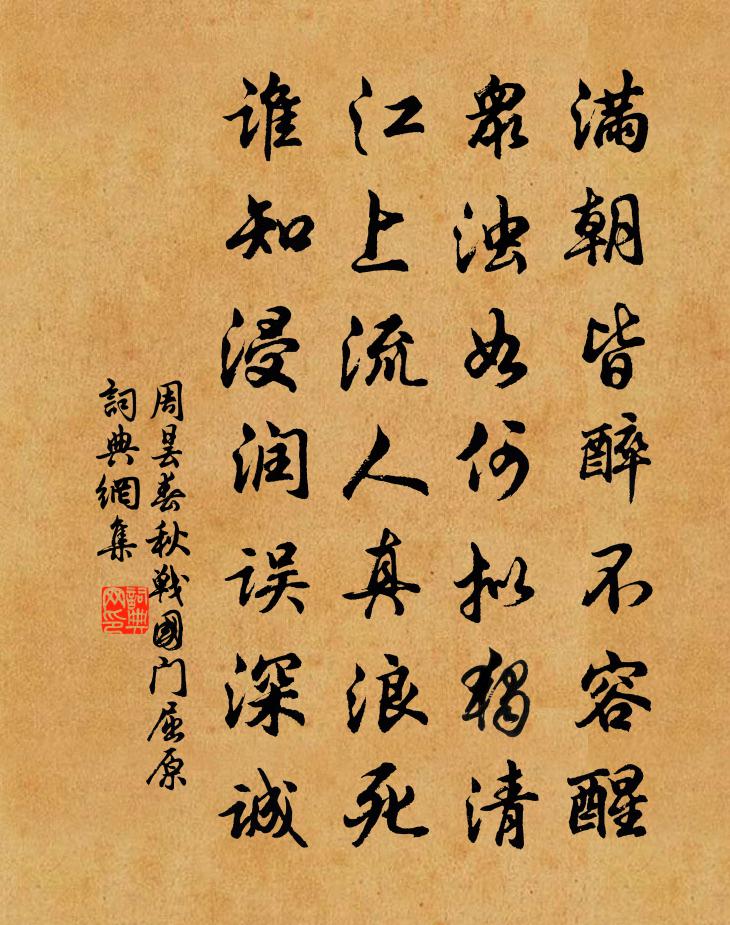 满朝皆醉不容醒
众浊如何拟独清
江上流人真浪死
谁知浸润误深诚
周昙春秋战国门屈原
詞典網集
詞典網印